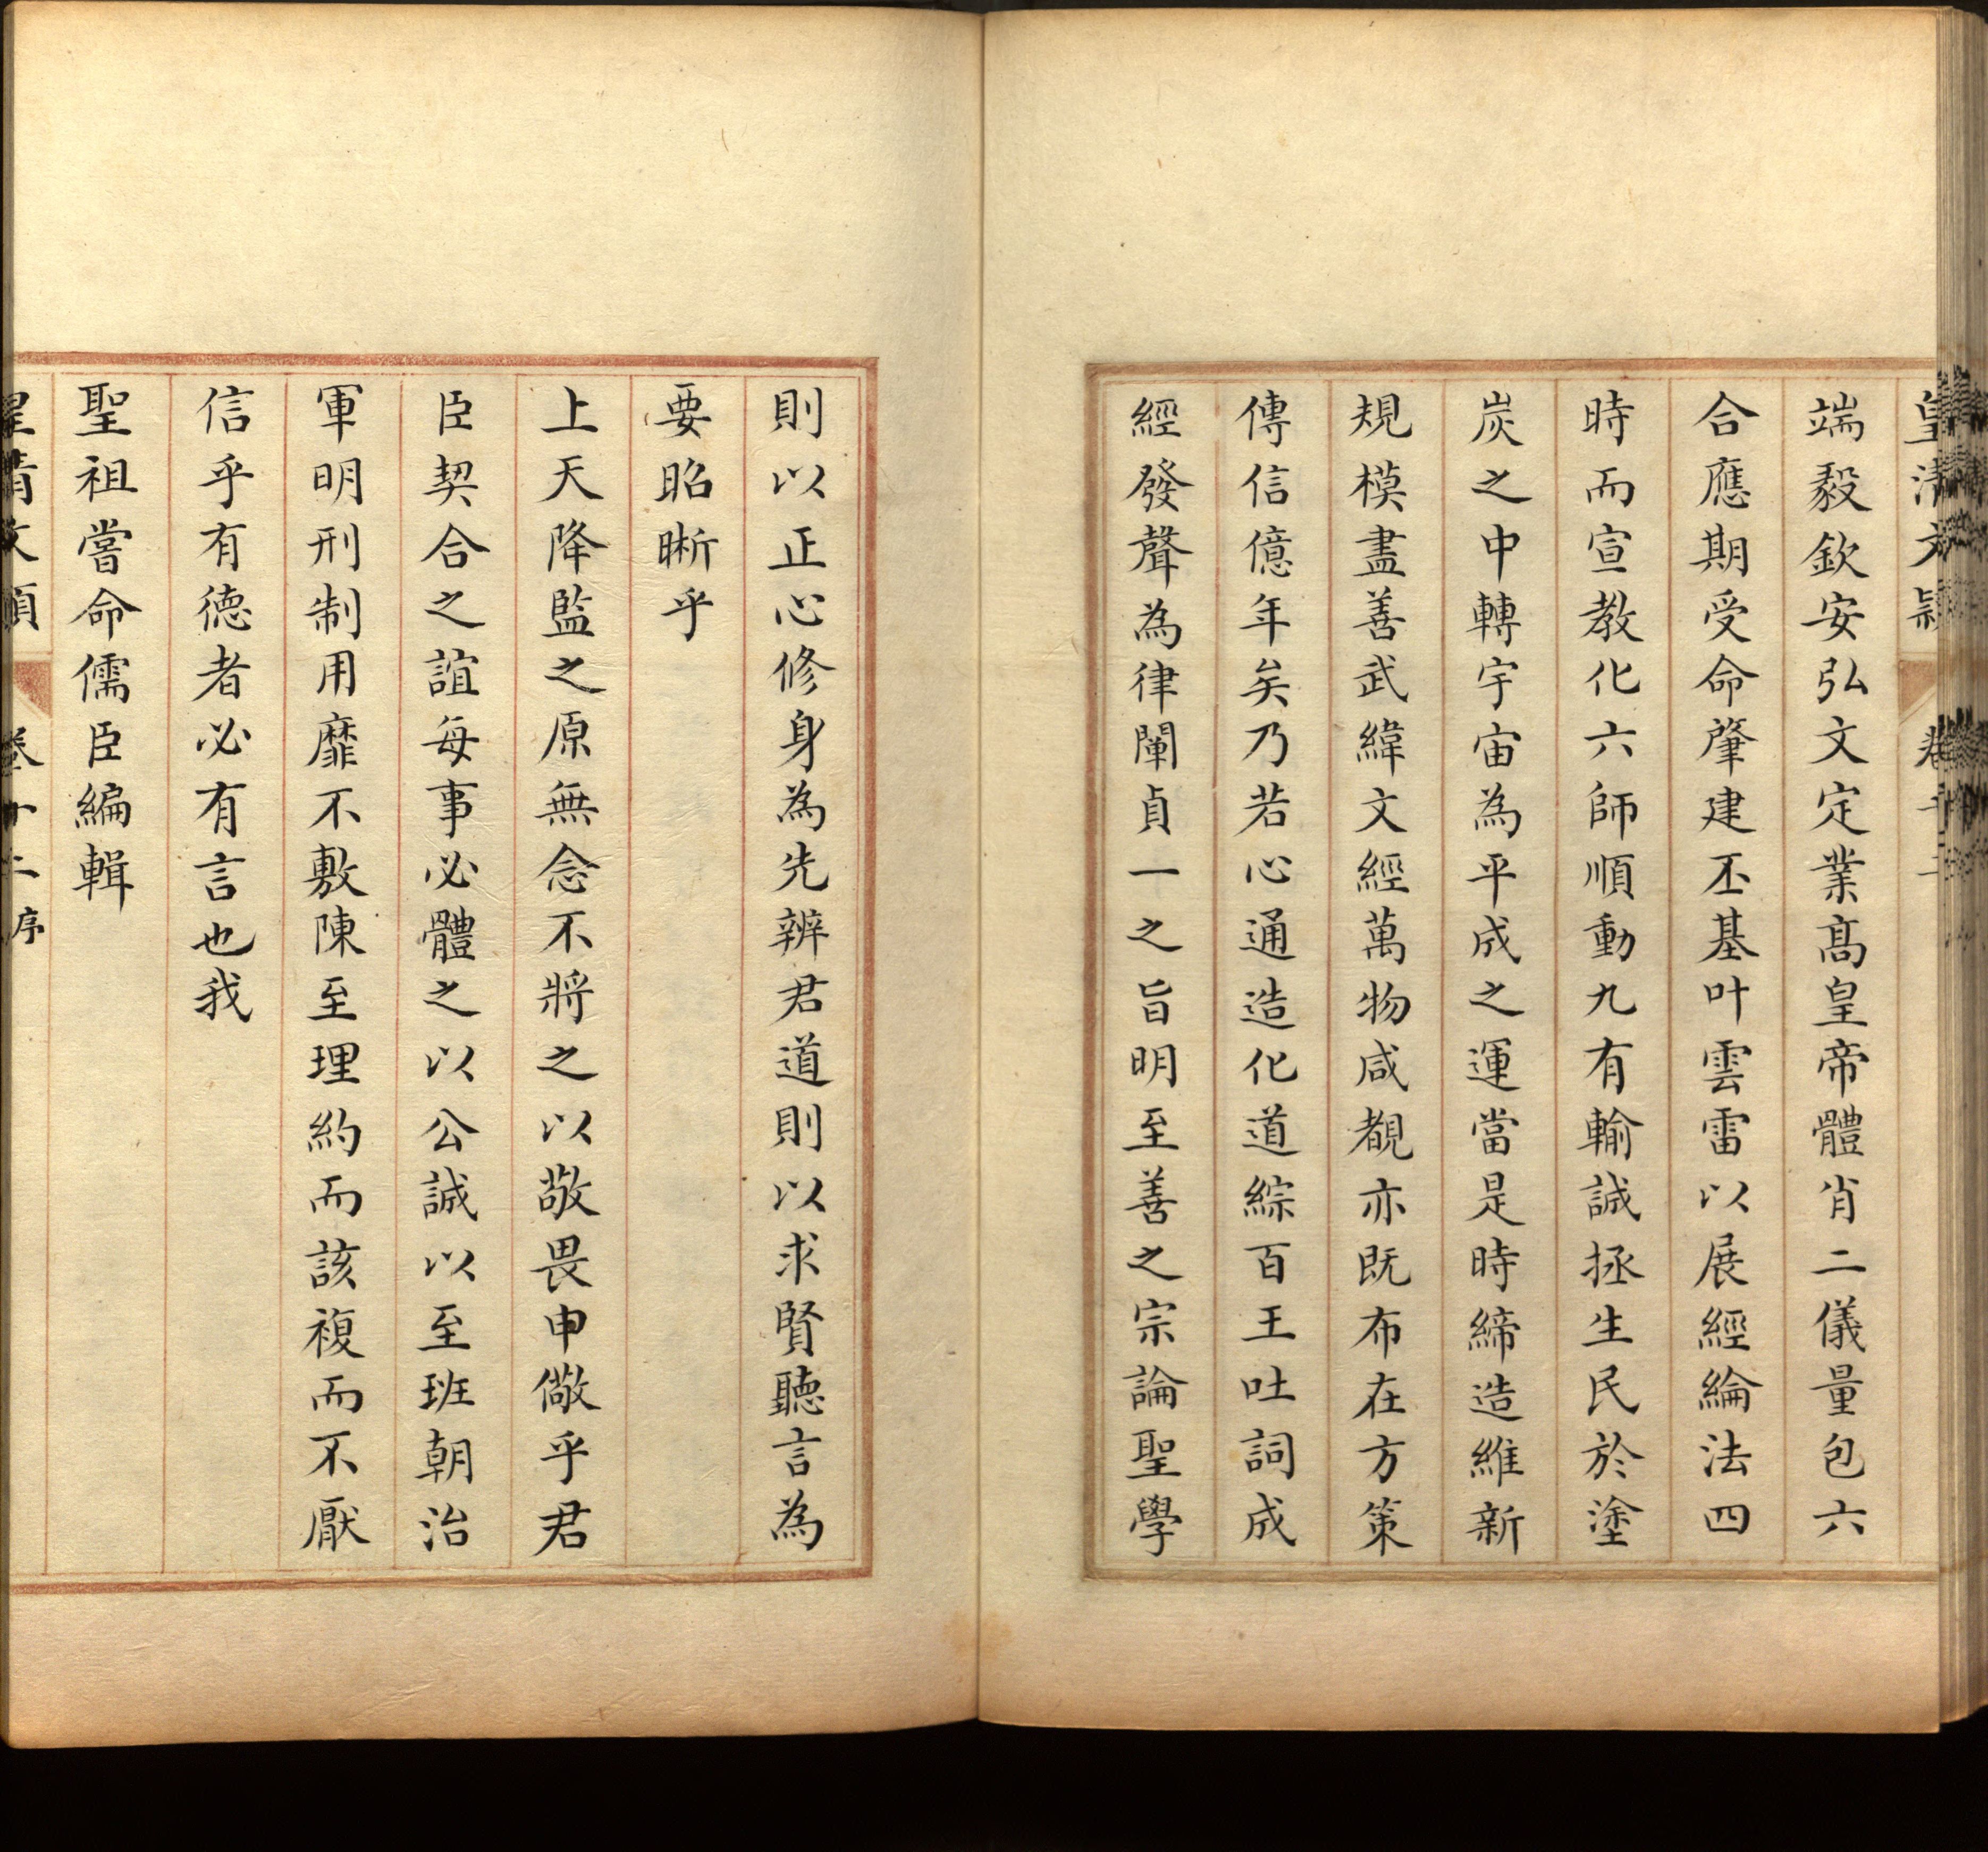 皇清文穎 卷十二
端毅欽安弘文定業髙皇帝體肖二儀量包六
合應期受命肇建丕基叶雲雷以展經綸法四
時而宣教化六師順動九有輸誠拯生民於塗
炭之中轉宇宙為平成之運當是時締造維新
規模盡善武緯文經萬物咸覩亦既布在方策
傳信億年矣乃若心通造化道綜百王吐詞成
經發聲為律闡貞一之旨明至善之宗論聖學
則以正心修身為先辨君道則以求賢聽言為
要昭晰乎
上天降監之原無念不將之以敬畏申儆乎君
臣契合之誼每事必體之以公誠以至班朝治
軍明刑制用靡不敷陳至理約而該複而不厭
信乎有德者必有言也我
聖祖嘗命儒臣編輯
皇清文穎 卷十二序